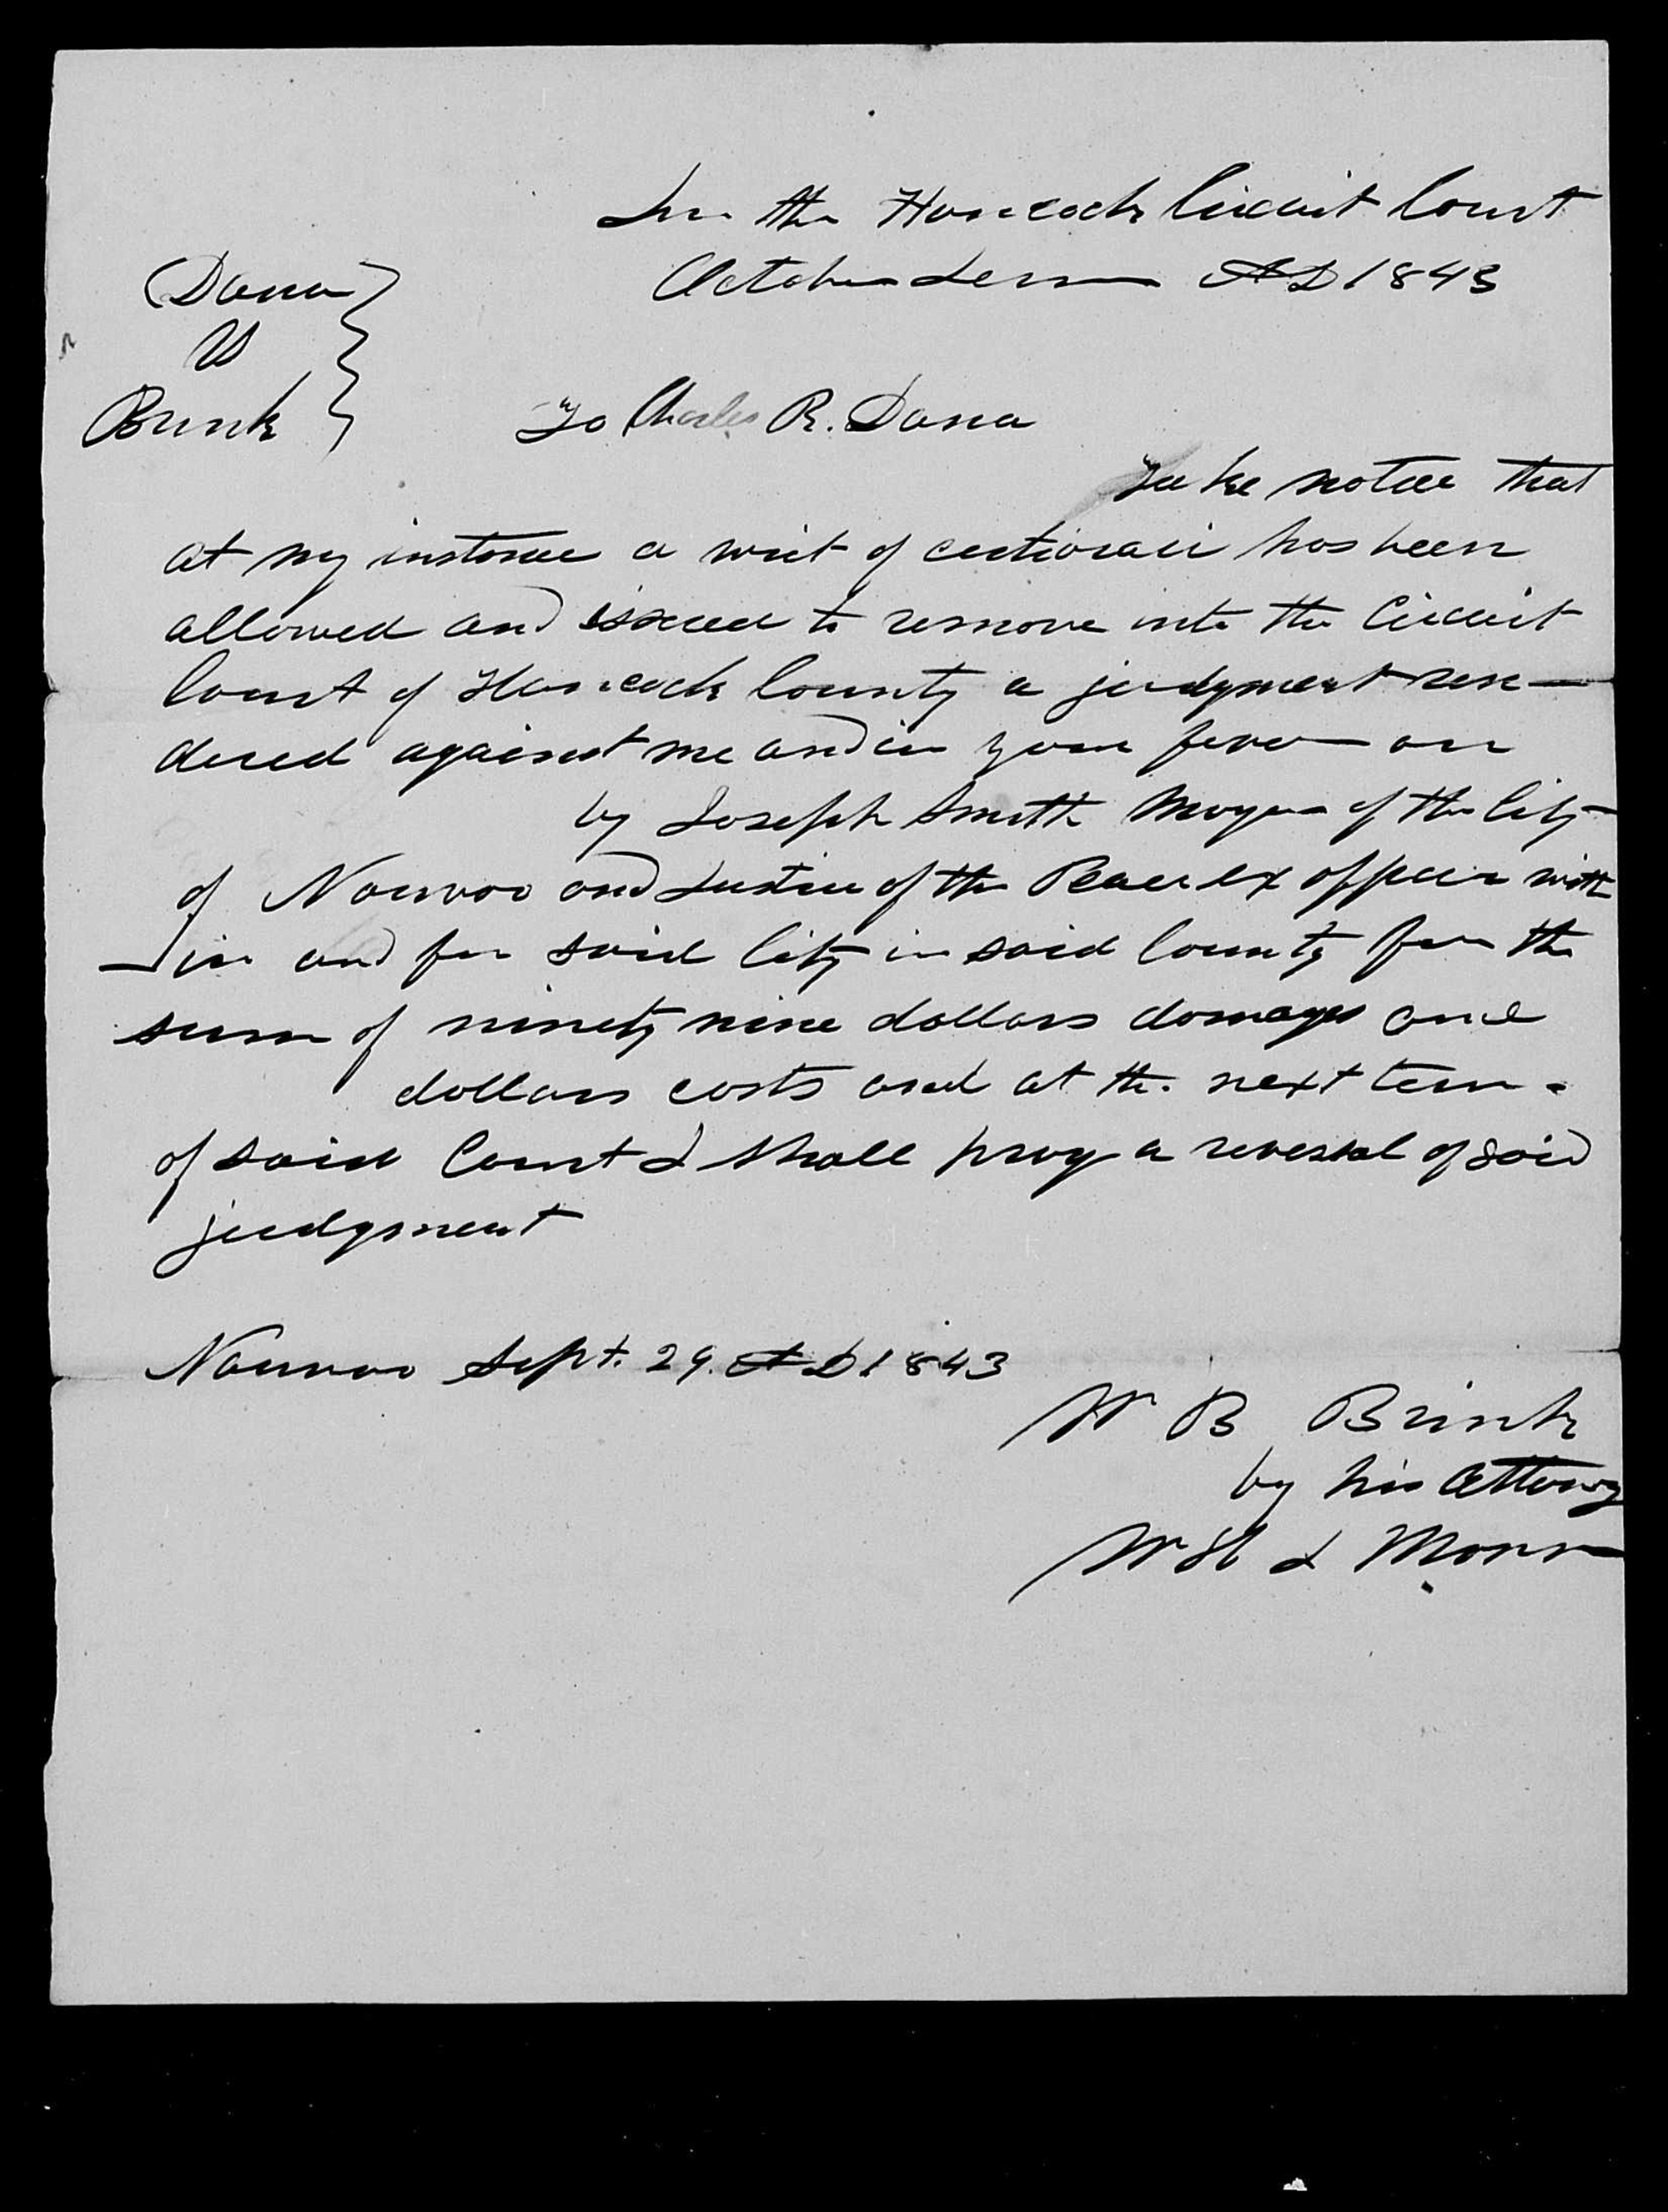 In the Hancock Circuit Court
October Term AD 1843
Dana
vs
Brink
To Charles R. Dana
Take notice that
at my instance a writ of certiorari has been
allowed and issued to remove into the Circuit
Court of Hancock County a judgment ren-
dered against me and in your favor on
by Joseph Smith Mayor of the City
of Nauvoo and Justice of the Peace ex officio with
in and for said City in said County for the
sum of ninety nine dollars damages and
dollars costs and at the next term
of said Court I shall pray a reversal of said
judgment
Nauvoo Sept. 29. AD. 1843
W B Brink
by his Attorney
W H J Marr